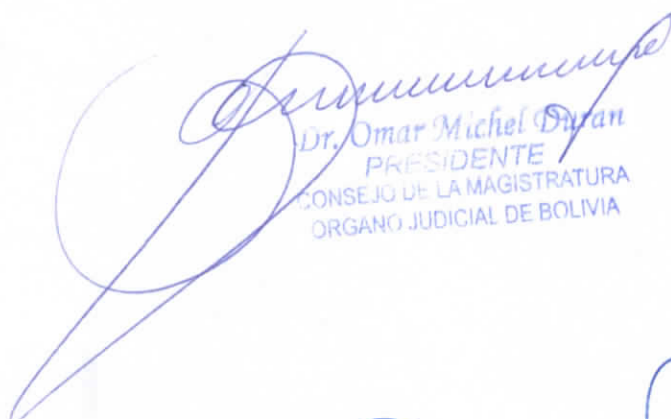 Dr. Omar Michel Duran
PRESIDENTE
CONSEJO DE LA MAGISTRATURA
ORGANO JUDICIAL DE BOLIVIA